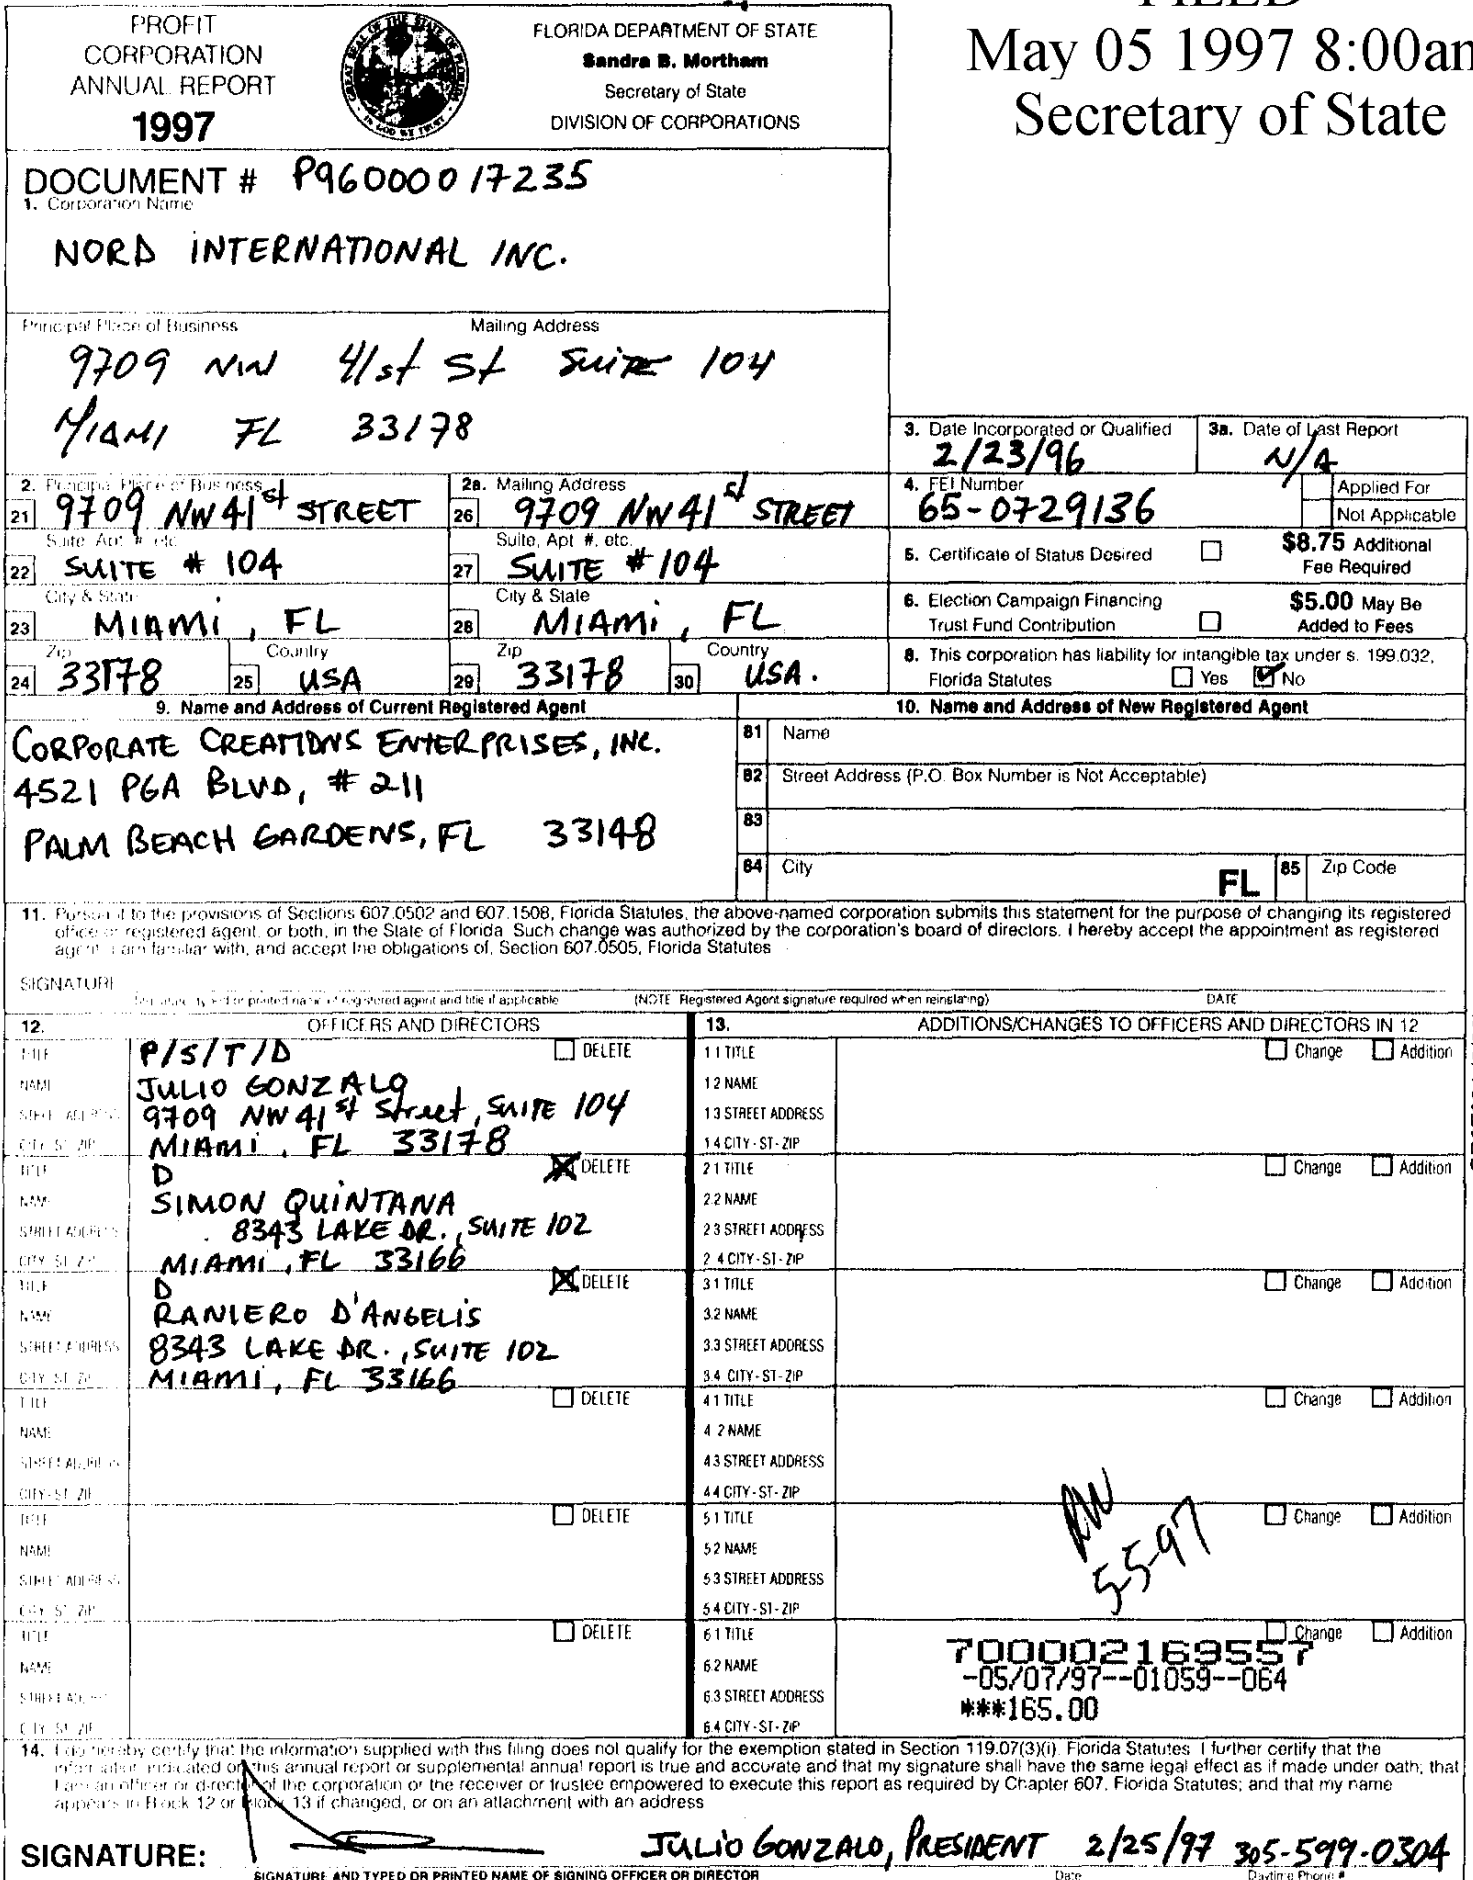 PROFIT
CORPORATION
ANNUAL REPORT
1997
FLORIDA DEPARTMENT OF STATE
Sandra B. Mortham
Secretary of State
DIVISION OF CORPORATIONS
FILED
May 05 1997 8:00am
Secretary of State
DOCUMENT # P96000017235
1. Corporation Name
NORD INTERNATIONAL INC.
Principal Place of Business Mailing Address
9709 NW 41st St Suite 104
MIAMI FL 33178
3. Date Incorporated or Qualified
2/23/96
3a. Date of Last Report
N/A
2. Principal Place of Business
21 9709 NW 41st STREET
2a. Mailing Address
26 9709 NW 41st STREET
4. FEI Number
65-0729136
Applied For
Not Applicable
Suite, Apt. #, etc.
22 SUITE # 104
Suite, Apt. #, etc.
27 SUITE # 104
5. Certificate of Status Desired
$8.75 Additional
Fee Required
City & State
23 MIAMI, FL
City & State
28 MIAMI, FL
6. Election Campaign Financing
Trust Fund Contribution
$5.00 May Be
Added to Fees
Zip
24 33178
Country
25 USA
Zip
29 33178
Country
30 USA.
8. This corporation has liability for intangible tax under s. 199.032,
Florida Statutes Yes No
9. Name and Address of Current Registered Agent
CORPORATE CREATIONS ENTERPRISES, INC.
4521 PGA BLVD, # 211
PALM BEACH GARDENS, FL 33148
10. Name and Address of New Registered Agent
81 Name
82 Street Address (P.O. Box Number is Not Acceptable)
83
84 City FL 85 Zip Code
11. Pursuant to the provisions of Sections 607.0502 and 607.1508, Florida Statutes, the above-named corporation submits this statement for the purpose of changing its registered
office or registered agent, or both, in the State of Florida. Such change was authorized by the corporation's board of directors. I hereby accept the appointment as registered
agent. I am familiar with, and accept the obligations of, Section 607.0505, Florida Statutes
SIGNATURE
Signature, typed or printed name of registered agent and title if applicable (NOTE Registered Agent signature required when reinstating) DATE
12. OFFICERS AND DIRECTORS
TITLE P/S/T/D DELETE
NAME JULIO GONZALO
STREET ADDRESS 9709 NW 41st Street, SUITE 104
CITY-ST-ZIP MIAMI, FL 33178
TITLE D DELETE
NAME SIMON QUINTANA
STREET ADDRESS 8343 LAKE DR., SUITE 102
CITY-ST-ZIP MIAMI, FL 33166
TITLE D DELETE
NAME RANIERO D'ANGELIS
STREET ADDRESS 8343 LAKE DR., SUITE 102
CITY-ST-ZIP MIAMI, FL 33166
TITLE DELETE
NAME
STREET ADDRESS
CITY-ST-ZIP
TITLE DELETE
NAME
STREET ADDRESS
CITY-ST-ZIP
TITLE DELETE
NAME
STREET ADDRESS
CITY-ST-ZIP
13. ADDITIONS/CHANGES TO OFFICERS AND DIRECTORS IN 12
1.1 TITLE Change Addition
1.2 NAME
1.3 STREET ADDRESS
1.4 CITY-ST-ZIP
2.1 TITLE Change Addition
2.2 NAME
2.3 STREET ADDRESS
2.4 CITY-ST-ZIP
3.1 TITLE Change Addition
3.2 NAME
3.3 STREET ADDRESS
3.4 CITY-ST-ZIP
4.1 TITLE Change Addition
4.2 NAME
4.3 STREET ADDRESS
4.4 CITY-ST-ZIP
RW
5-5-97
5.1 TITLE Change Addition
5.2 NAME
5.3 STREET ADDRESS
5.4 CITY-ST-ZIP
6.1 TITLE Change Addition
6.2 NAME
6.3 STREET ADDRESS
6.4 CITY-ST-ZIP
7000002169557
-05/07/97--01059--064
***165.00
14. I do hereby certify that the information supplied with this filing does not qualify for the exemption stated in Section 119.07(3)(i), Florida Statutes. I further certify that the
information indicated on this annual report or supplemental annual report is true and accurate and that my signature shall have the same legal effect as if made under oath; that
I am an officer or director of the corporation or the receiver or trustee empowered to execute this report as required by Chapter 607, Florida Statutes; and that my name
appears in Block 12 or Block 13 if changed, or on an attachment with an address
SIGNATURE: JULIO GONZALO, PRESIDENT 2/25/97 305-599-0304
SIGNATURE AND TYPED OR PRINTED NAME OF SIGNING OFFICER OR DIRECTOR Date Daytime Phone #